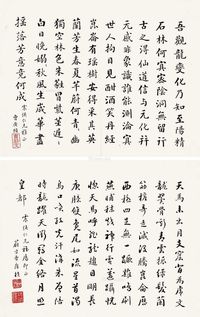 吾觀龍變化乃知至陽精
石林何冥密幽洞無留行
古之得仙道信與元化并
元感非象識誰能測淪冥
世人拘目見酣酒笑丹經
崑崙有瑤樹安得采其英
蘭若生春夏芊蔚何青青幽
獨空林色朱蕤冒紫莖遲遲
白日晚嫋嫋秋風生歲華盡
搖落芳意竟何成
天馬來出月支窟背為虎文
龍翼骨嘶青雲振綠髮蘭
筋權奇走滅沒騰崑崙歷
西極四足無一蹶雞鳴刷
燕晡秣越神行電邁躡恍
惚天馬呼飛龍趨目明長
庚臆雙鳧尾如流星首渴
烏口噴紅光汗溝朱曾陪
時龍躍天衢羈金絡月照
皇都